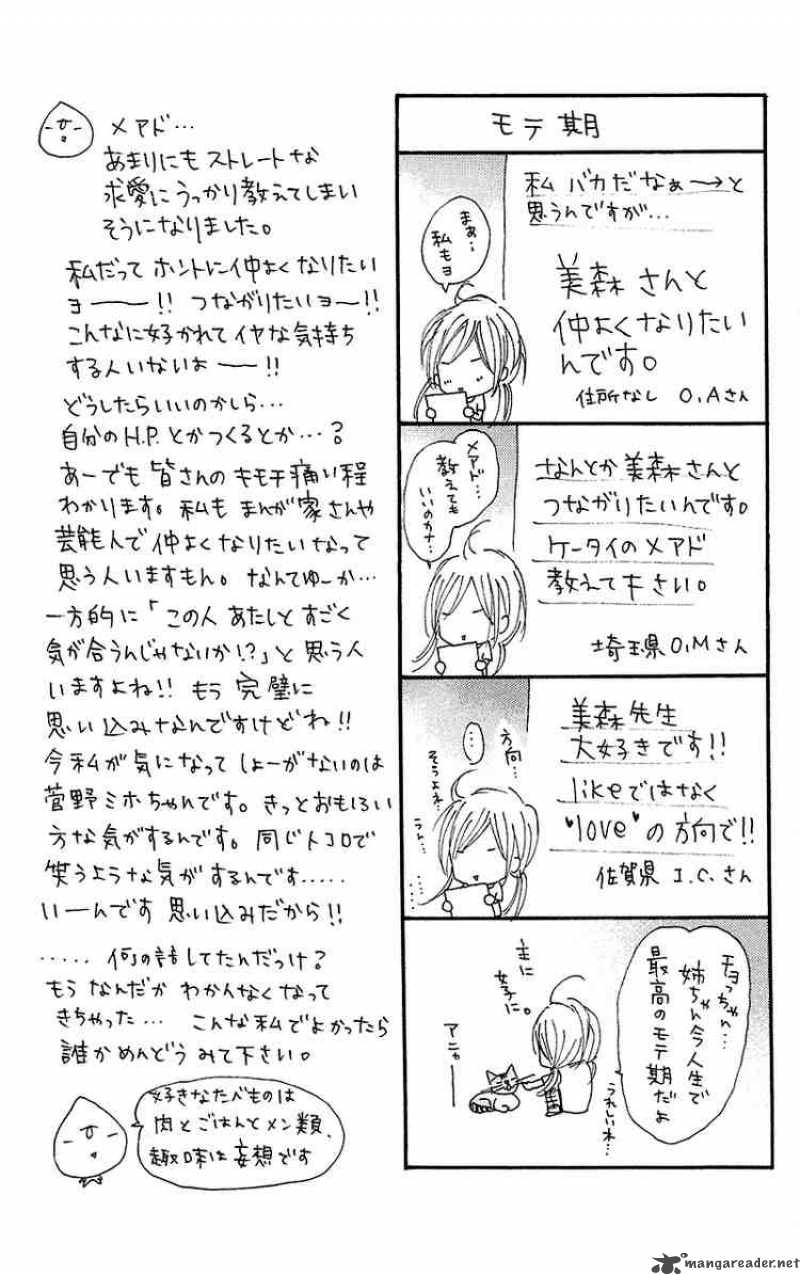 モテ期
私 バカだなぁーーっと
思うんですが…
美森さんと
仲よくなりたい
んです。
住所なし O,Aさん
まぁ…
私もヨ
なんとか美森さんと
つながりたいんです。
ケータイのメアド
教えて下さい。
埼玉県O,Mさん
メアド…
教えても
いいのカナ…
美森先生
大好きです!!
likeではなく
"love"の方向で!!
佐賀県 I.C.さん
方向…
(…)
そうよネ…
うん…
チョっちゃん…
姉ちゃん今人生で
最高のモテ期だよ
うれしいネ…
主に
女子に。
アニャーー
メアド…
あまりにもストレートな
求愛にうっかり教えてしまい
そうになりました。
私だって ホントに仲よくなりたい
ヨーーー!! つながりたいヨー!!
こんなに好かれてイヤな気持ち
する人いないよーー!!
どうしたらいいのかしら…
自分のH.P.とかつくるとか…?
あーでも 皆さんのキモチ痛い程
わかります。私も まんが家さんや
芸能人で仲よくなりたいなって
思う人いますもん。なんてゆーか…
一方的に「この人 あたしとすごく
気が合うんじゃないか!?」と思う人
いますよね!! もう 完璧に
思い込みなんですけどね!!
今私が気になってしょーがないのは
菅野ミホちゃんです。きっとおもしろい
方な気がするんです。同じトコロで
笑うような気がするんです.....
いーんです 思い込みだから!!
..... 何の話してたんだっけ?
もう なんだか わかんなくなって
きちゃった… こんな私でよかったら
誰かめんどうみて下さい。
好きなたべものは
肉とごはんとメン類、
趣味は妄想です
mangareader.net